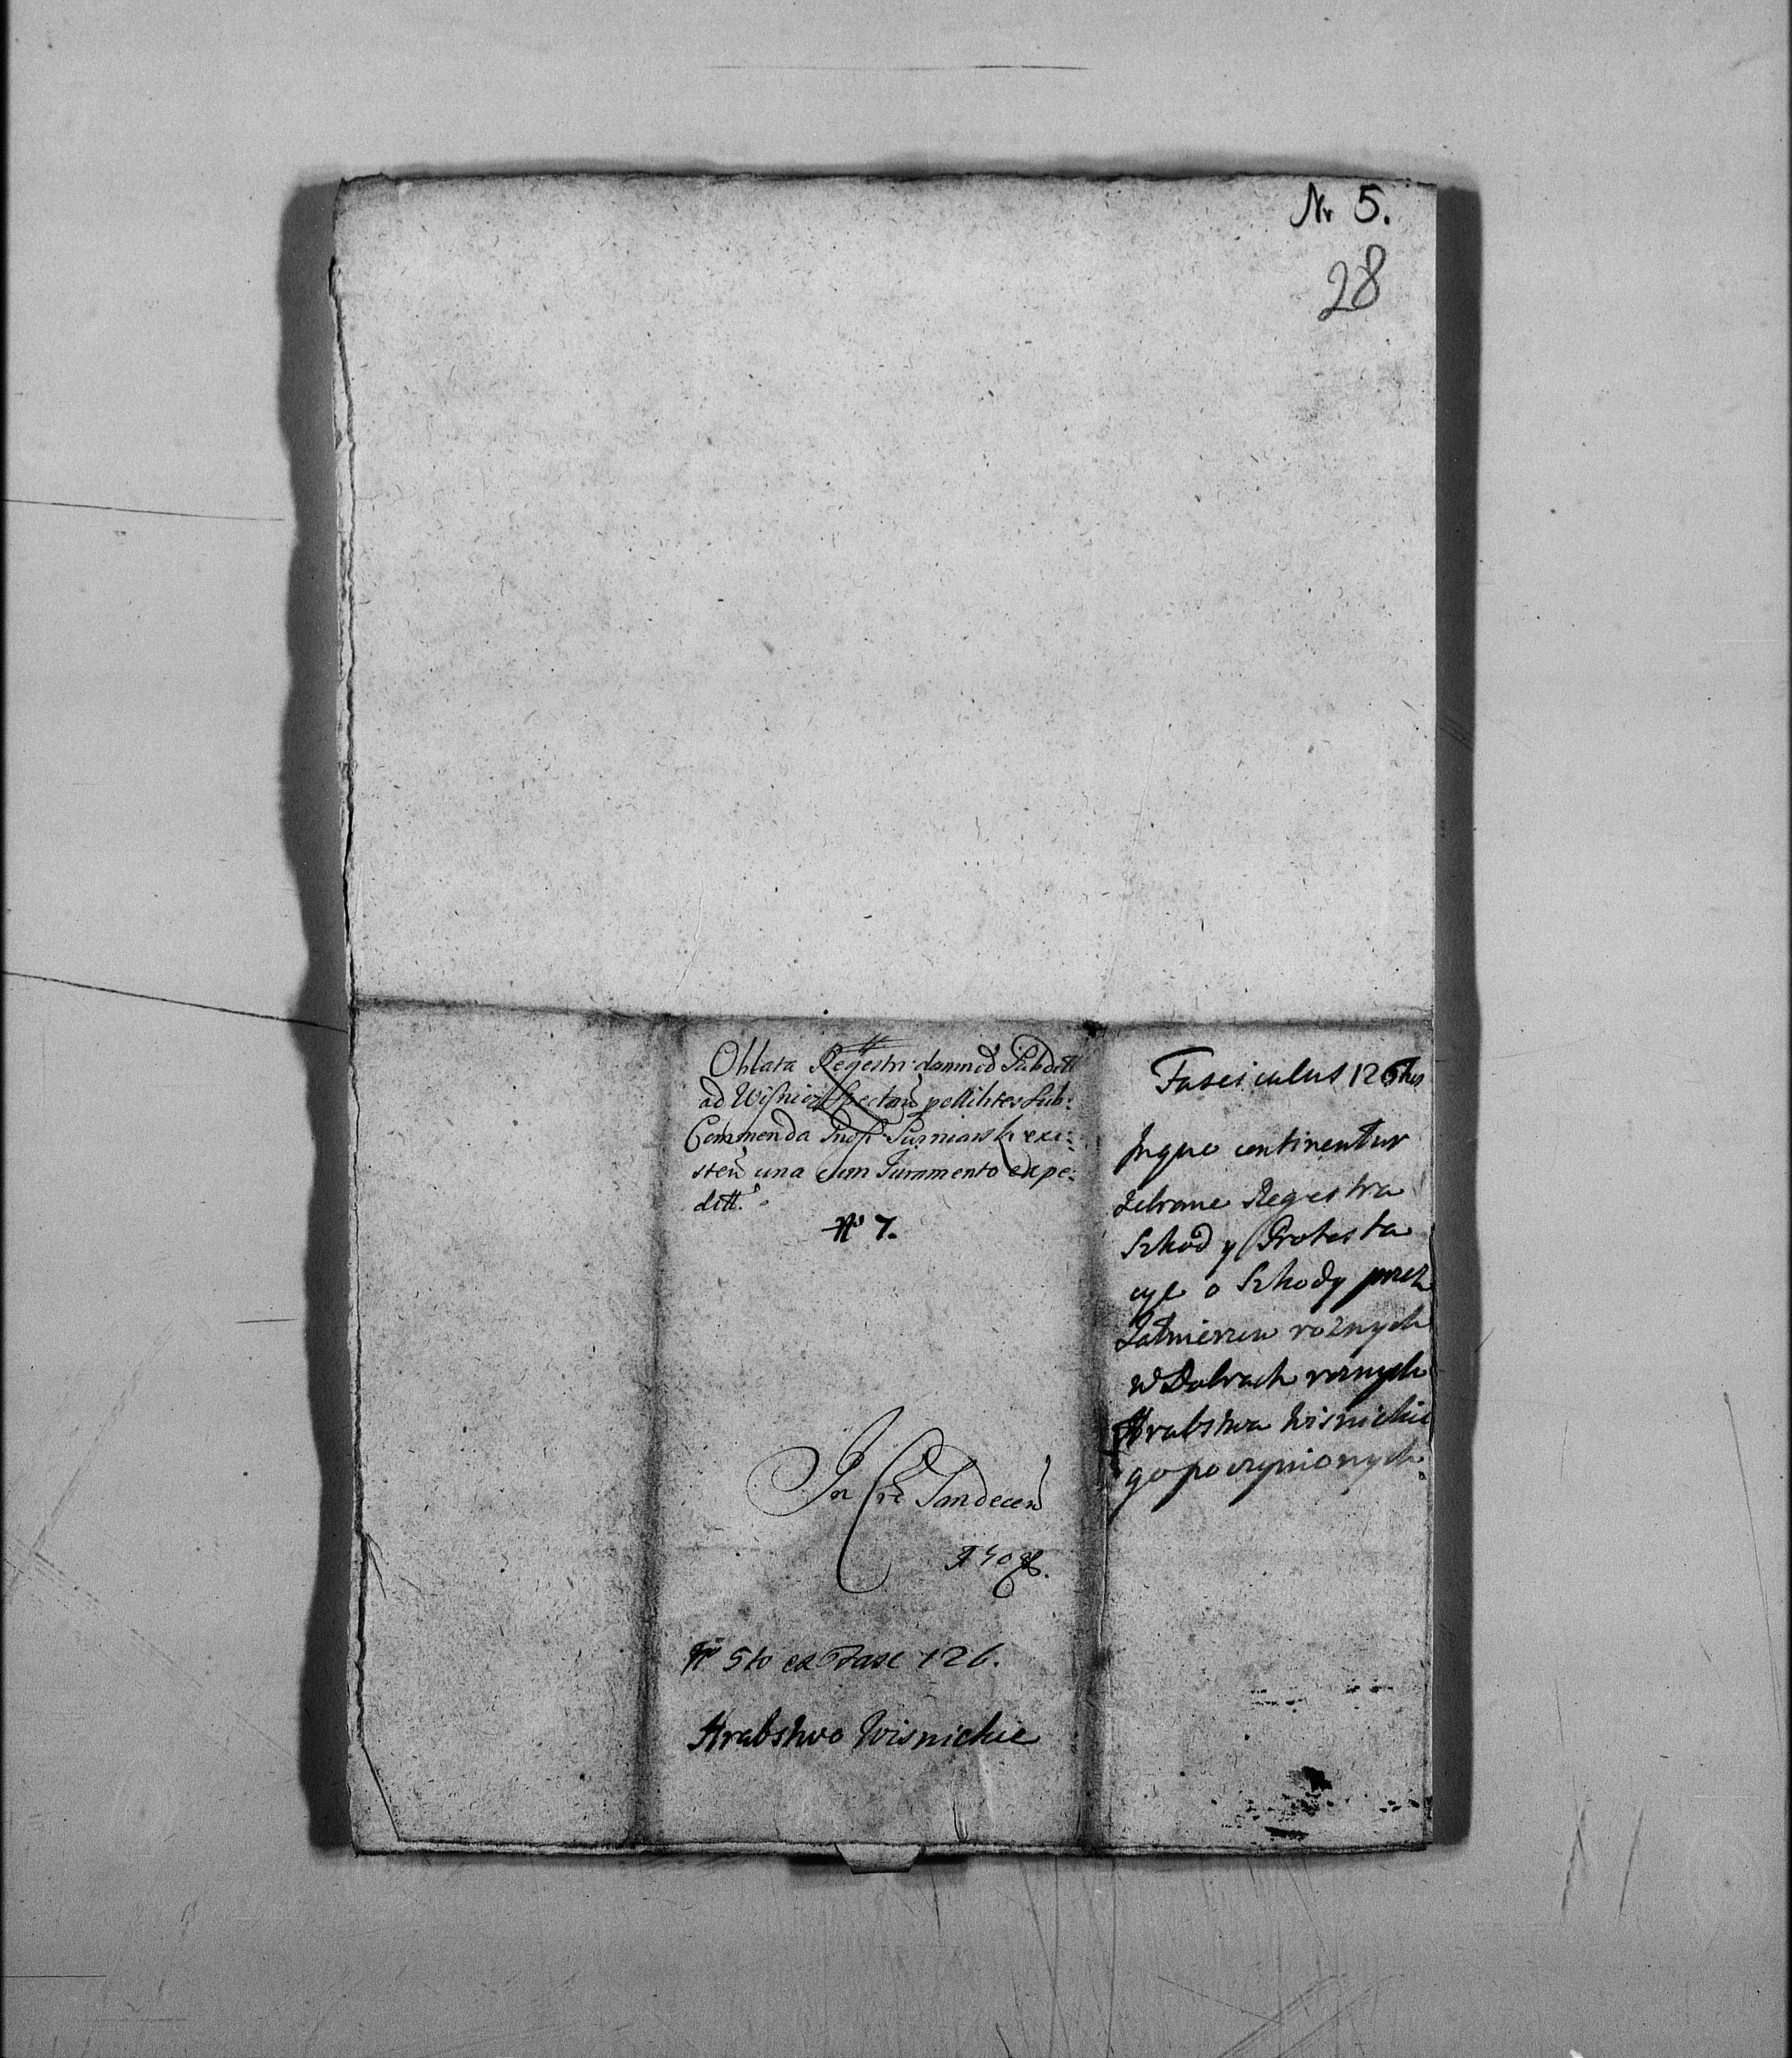 Nr 5.
28
Oblata Regestri damnoꝝ Subditt
ad Wiśnicz Spectan̄ per Milites Sub:
Commenda exi:
sten̄ una cum Juramento expe:
ditt.
Nº 7.
In Cre Sandecen̄
Nº 5to ex Fasc 126.
Hrabstwo Wisnickie
Fasciculus 126tus
Inquo continentur
zebrane Regestra
Szkod y Protesta
cye o Szkody przez
Zołnierzów roznych
w Dobrach roznych
Hrabstwa Wisnickie
go poczynionych